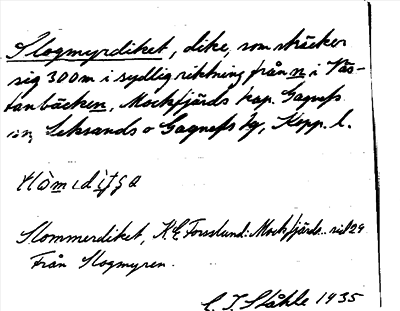 Slogmyrdiket, dike, som sträcker
sig 300 m i sydlig riktning från n i Väs-
tanbäcken, Mockfjärds kap. Gagnefs
sn, Leksands o Gagnefs tg, Kopp. l.
Slommerdiket, K. E. Forsslund: Mockfjärds.. sid 29
Från Slogmyren.
C. I. Ståhle 1935